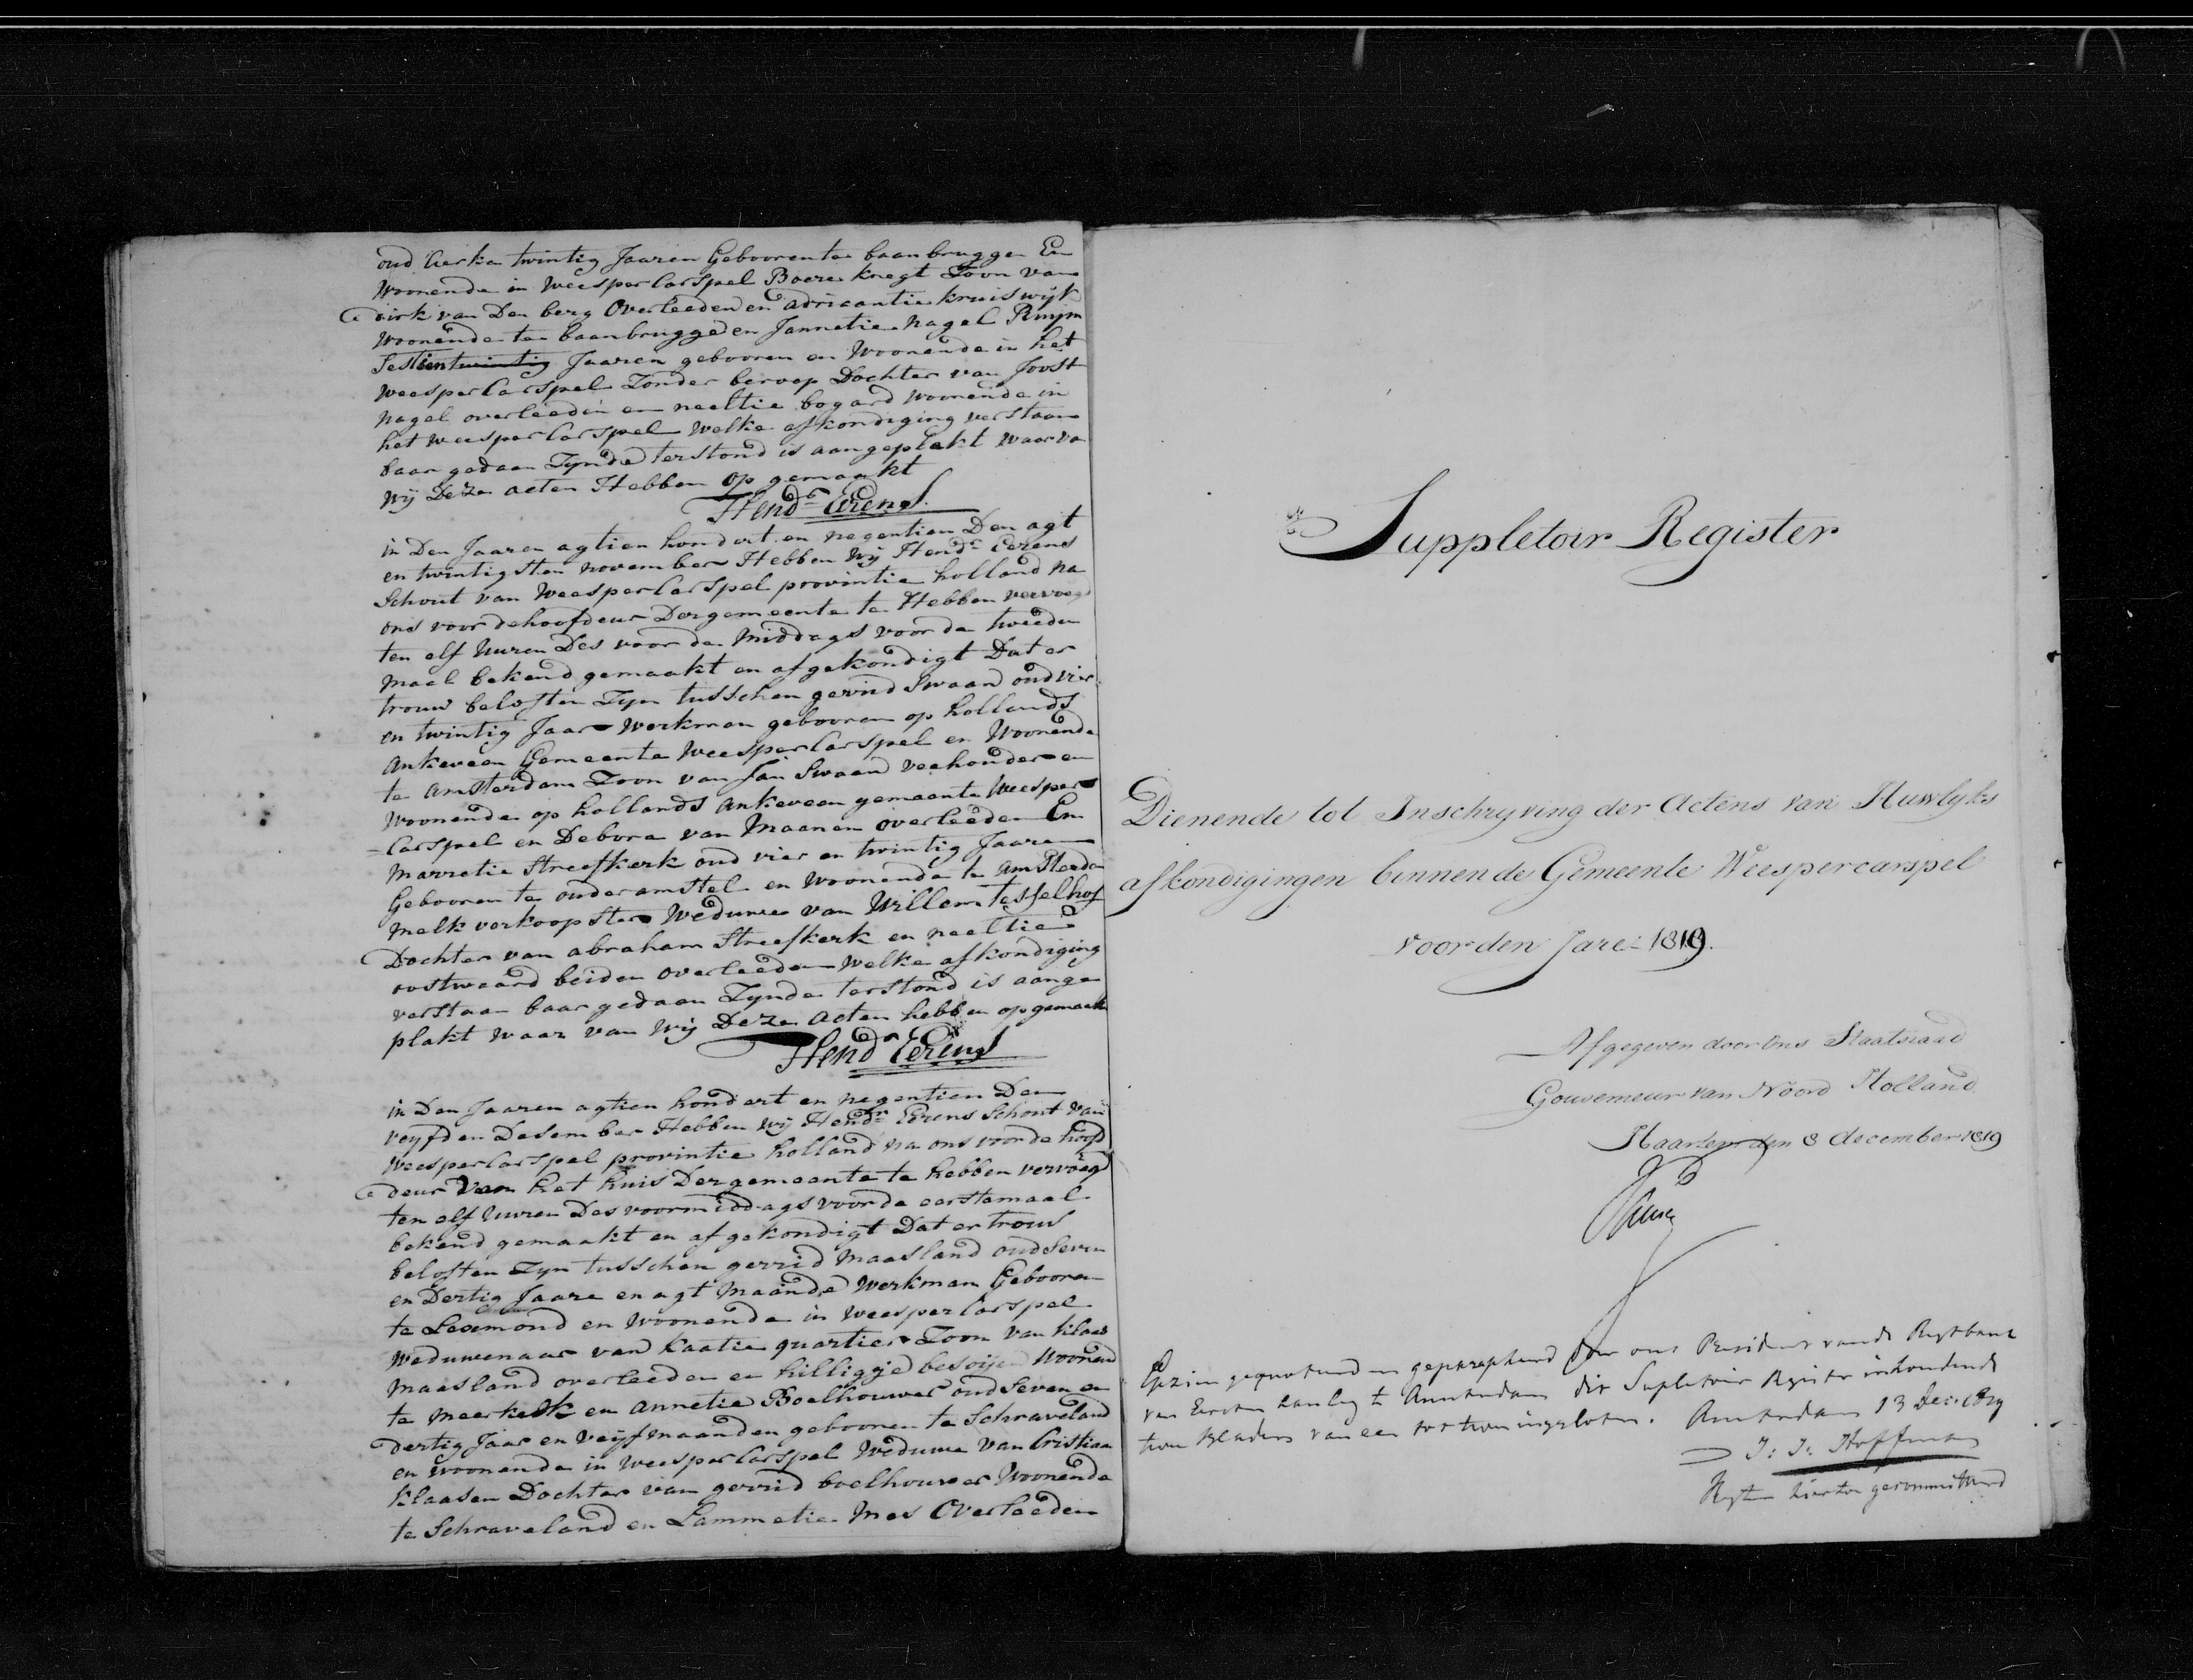 oud vier en twintig Jaaren Gebooren te baanbruggen En
Woonende in Weesper Carspel Boere knegt Zoon van
dirk van Den berg Overleeden en adriaantie kruiswijk
Woonende te baanbrugge en Jannetie Nagel Ruijm
Sestien twintig Jaaren gebooren en Woonende in het
Weesper Carspel Zonder beroep Dochter van Joost
Nagel overleeden en neeltie bogard woonende in
het weesper Carspel Welke afkondiging verstaan
baar gedaan Zynde terstond is aangeplakt waar va
Wij Deze acten Hebben op gemaakt
Hendk Eerens
in Den Jaaren agtien hondert en negentien Den agt
en twintigsten november Hebben Wij Hendk Eerens
Schout van Weesper Carspel provintie holland na
ons voor dehoofdeur Der gemeente te Hebben vervoegd
ten elf Huren Des voor de Middags voor de tweede
Maal bekend gemaakt en afgekondigt Dat er
trouw beloften Zyn tusschen gerrid Swaan oud vier
en twintig Jaar Werkman gebooren op hollands
Ankeveen Gemeente Weesper Carspel en Woonende
te Amsterdam Zoon van Jan Swaan veehouder en
Woonende op hollands Ankeveen gemeente Weesper
Carspel en Debora van Maanen overleeden En
Marretie Streefkerk oud vier en twintig Jaaren
Gebooren te ouderamstel en woonende te Amsterdam
Melk verkoopster Weduwe van Willem Tesselhof
Dochter van abraham Streefkerk en neeltie
oostwaard beiden overleeden Welke afkondiging
verstaan baar gedaan Zynde terstond is aange
plakt waar van Wij Deze acten hebben opgemaakt
Hendk Eerens
in Den Jaaren agtien hondert en negentien Den
veyfden Desember Hebben Wij Hendk Eerens Schout van
Weesper Carspel provintie holland na ons voor de hoofd
deur van het huis Der gemeente te hebben vervoegd
ten elf Huren Des voormiddags voor de eerstemaal
bekend gemaakt en afgekondigt Dat er trouw
beloften Zyn tusschen gerrid Maasland oud Seven
en Dertig Jaare en agt Maande Werkman Gebooren
te Lexmond en Woonende in Weesper Carspel
Weduwenaar van kaatie quartier Zoon van klaas
Maasland overleeden en hilligje besoijen Woonend
te Meerkerk en Annetie Boelhouwer oud Seven en
dertig Jaar en Veyfmaanden gebooren te Schraveland
en woonende in Weesper Carspel Weduwe van Cristiaan
klaasen Dochter van gerrid boelhouwer Woonende
te Schraveland en Lammetie Mes Overleeden
Suppletoir Register
Dienende tot Inschryving der Actens van Huwlyks
afkondigingen binnen de Gemeente Weespercarspel
voor den Jare 1819.
Afgegeven door Ons Staatsraad
Gouverneur van Noord Holland
Haarlem den 8 december 1819
Gezien gequoteerd en geparapheerd door ons President van de Regtbank
van Eersten Aanleg te Amsterdam dit Supletoir Register inhoudende
twee Bladers van een tot twee ingesloten. Amsterdam 13 Dec: 1819
J: J: Hoffman
Regter hiertoe gecommitteerd